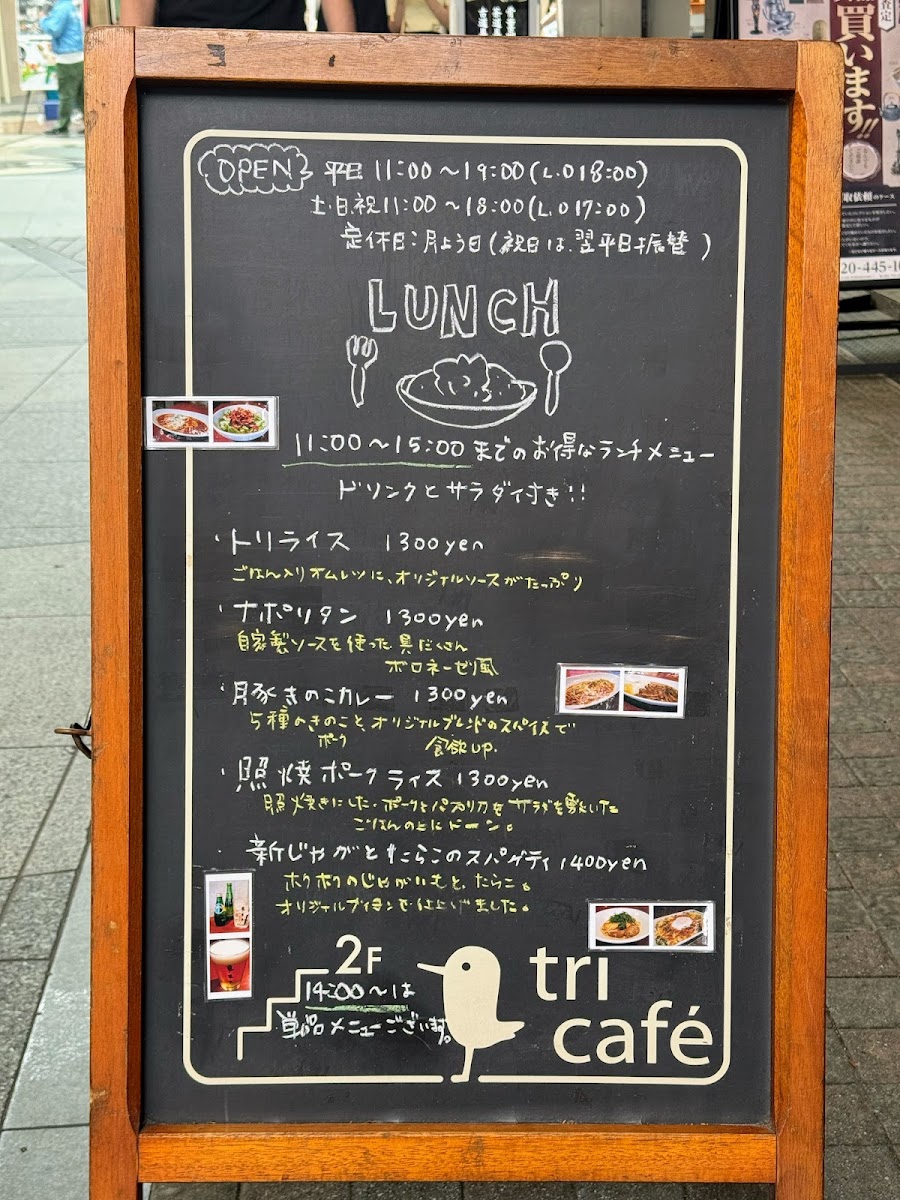 買います!!
取依頼のケース
20-445-10
OPEN 平日 11:00～19:00(L.O 18:00)
土・日.祝 11:00～18:00(L.O 17:00)
定休日:月よう日(祝日は.翌平日振替 )
LUNCH
11:00～15:00 までのお得なランチメニュー
ドリンクとサラダ付き!!
・トリライス 1300yen
ごはん入りオムレツに、オリジナルソースがたっぷり
・ナポリタン 1300yen
自家製ソースを使った具だくさん
ボロネーゼ風
・豚きのこカレー 1300yen
5種のきのことポーク、オリジナルブレンドのスパイスで
食欲UP.
・照焼ポークライス 1300yen
照焼きにした・ポークとパプリカをサラダを敷いた
ごはんの上にドーン。
新じゃがとたらこのスパゲティ 1400yen
ホクホクのじゃがいもと、たらこ。
オリジナルブイヨンで仕上げました。
2F
14:00～は
単品メニューございます。
tri
café